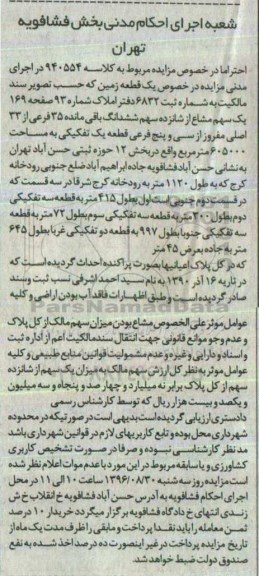 شعبه اجرای احکام مدنی بخش فشافویه
تهران
احتراما در خصوص مزایده مربوط به کلاسه ۹۴۰۵۵۴ در اجرای
مدنی مزایده در خصوص یک قطعه زمین که حسب تصویر سند
مالکیت به شماره ثبت ۶۸۳۲ دفتر املاک شماره ۹۳ صفحه ۱۶۹
یک سهم مشاع از شانزده سهم ششدانگ باقی مانده ۳۵ فرعی از ۳۳
اصلی مفروز از سی و پنج فرعی قطعه یک تفکیکی به مساحت
۶۰۵۰۰۰ متر مربع واقع در بخش ۱۲ حوزه ثبتی حسن آباد تهران
به نشانی حسن آباد فشافویه جاده ابراهیم آباد ضلع جنوبی رودخانه
کرج که به طول ۱۱۲۰ متر به رودخانه کرج شرقا در سه قسمت که
در قسمت دوم جنوبی است اول بطول ۴۱۵ متر به قطعه سه تفکیکی
دوم بطول ۲۰۰ متر به قطعه سه تفکیکی سوم بطول ۷۲ متر به قطعه
سه تفکیکی جنوبا بطول ۹۹۷ به قطعه دو تفکیکی غربا بطول ۶۴۵
متر به جاده بعرض ۴۵ متر
که در کل پلاک اعیانیها بصورت پراکنده احداث گردیده است که
در تاریه ۱۶ آذر ۱۳۹۰ به نام سید احمد اشرفی نسب ثبت وسند
صادر گردیده است و طبق اظهارات فاقد آب بودن اراضی و کلیه
ParsNamadData
عوامل موثر علی الخصوص مشاع بودن میزان سهم مالک از کل پلاک
و عدم وجو موانع قانونی جهت انتقال سند مالکیت اعم از اداره ثبت
و اسناد و دارایی و غیره و عدم مشمولیت قوانین منابع طبیعی و کلیه
عوامل موثر به نظر کل ارزش سهم مالک به میزان یک سهم از شانزده
سهم از کل پلاک برابر نه میلیارد و چهار صد و پنجاه و سه میلیون
و یکصد و بیست هزار ریال که توسط کارشناس رسمی
دادستری ارزیابی گردیده است بدیهی است در صورتیکه در محدوده
شهرداری محل بوده و تابع کاربریهای لازم در قوانین شهرداری باشد
مد نظر کارشناسی نبوده و صرفا در صورت تشخیص کاربری
کشاورزی و یا سابقه مربوط در این مورد با عدم موات اعلام نظر شده
است مزایده روز سه شنبه ۱۳۹۶/۰۸/۳۰ ساعت ۱۰ الی ۱۱ در محل
اجرای احکام فشافویه به آدرس حسن آباد فشافویه خ انقلاب خ ش
زندی انتهای خ دادگاه فشافویه برگزار میگردد خریدار ۱۰ درصد
ثمن معامله را باید نقدا پرداخت و مابقی را ظرف مدت یک ماه از
تاریخ مزایده پرداخت در غیر اینصورت ده درصد اخذ شده به نفع
صندوق دولت ضبط خواهد شد.